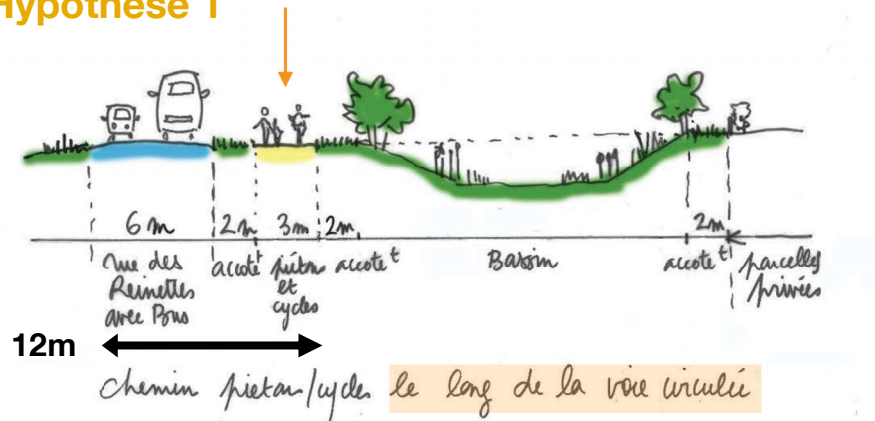 Hypothèse 1
6m 2m 3m 2m 2m
rue des Reinettes avec Bus
accotᵗ
piétons et cycles
accoteᵗ
Bassin
accoteᵗ
parcelles privées
12m
chemin pieton/cycles le long de la voie circulée